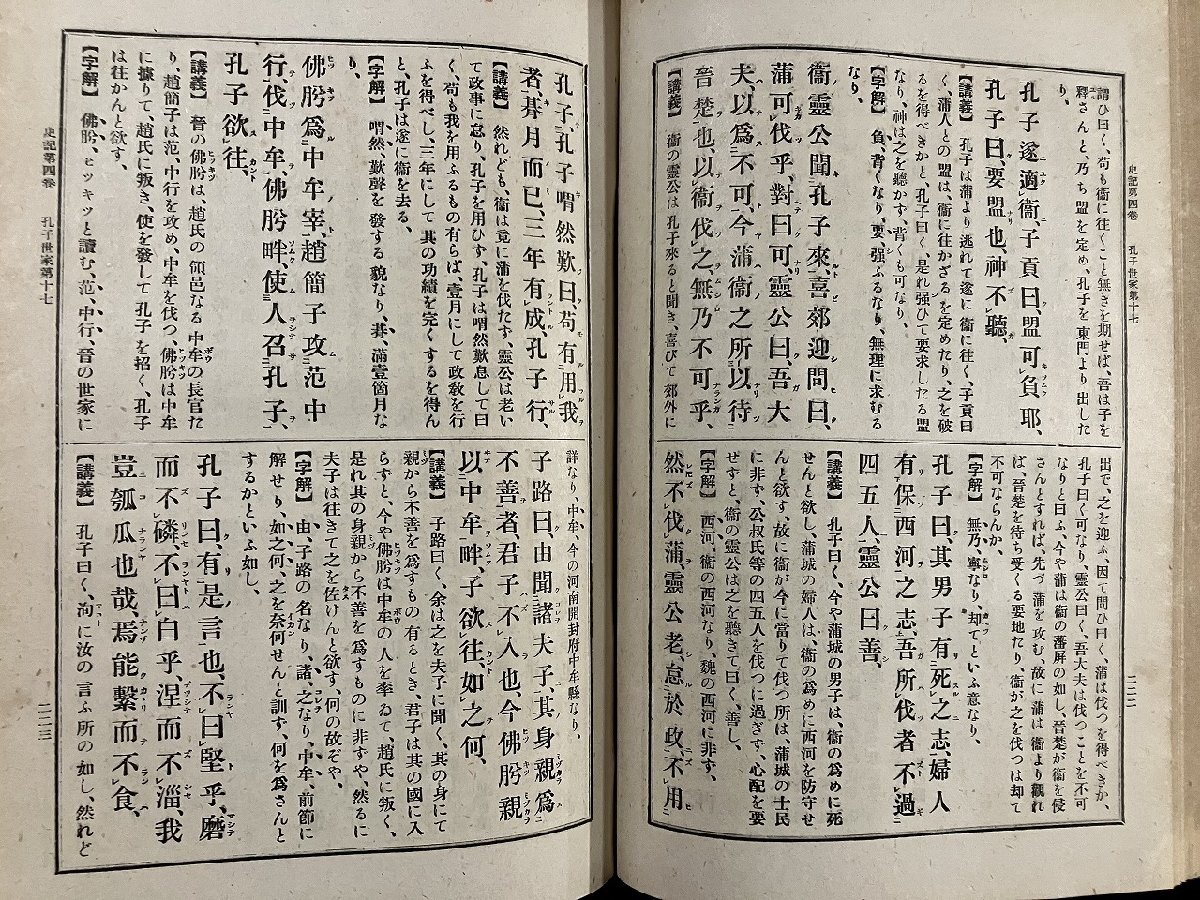 史記第四卷 孔子世家第十七
二二二
謂ひ曰く、苟も衞に往くこと無きを期せば、吾は子を
釋さんと、乃ち盟を定め、孔子を東門より出した
孔子遂適衞、子貢曰、盟可負耶、
孔子曰、要盟也、神不聽、
【講義】 孔子は蒲より逃れて遂に衞に往く、子貢曰
く、蒲人との盟は、衞に往かざるを定めたり、之を破
るを得べきかと、孔子曰く、是れ强ひて要求したる盟
なり、神は之を聽かず、背くも可なり、
【字解】 負、背くなり、要、强ふるなり、無理に求むる
なり、
衞靈公聞孔子來、喜郊迎問曰、
蒲可伐乎、對曰可、靈公曰、吾大
夫、以爲不可、今蒲衞之所以待
晉楚也、以衞伐之、無乃不可乎、
【講義】 衞の靈公は孔子來ると聞き、喜びて郊外に
出で、之を迎ふ、因て問ひ曰く、蒲は伐つを得べきか、
孔子曰く可なり、靈公曰く、吾大夫は伐つことを不可
なりと曰ふ、今や蒲は衞の藩屏の如し、晉楚が衞を侵
さんとすれば、先づ蒲を攻む、故に蒲は衞より觀れ
ば、晉楚を待ち受くる要地たり、衞が之を伐つは却て
不可ならんか、
【字解】 無乃、寧なり、却てといふ意なり、
孔子曰、其男子有死之志、婦人
有保西河之志、吾所伐者不過
四五人、靈公曰善、
【講義】 孔子曰く、今や蒲城の男子は、衞の爲めに死
せんと欲し、蒲城の婦人は、衞の爲めに西河を防守せ
んと欲す、故に衞が今に當りて伐つ所は、蒲城の士民
に非ず、公叔氏等の四五人を伐つに過ぎず、心配を要
せずと、衞の靈公は之を聽きて曰く、善し、
【字解】 西河、衞の西河なり、魏の西河に非ず、
然不伐蒲、靈公老、怠於政、不用
孔子、孔子喟然歎曰、苟有用我
者、朞月而已、三年有成、孔子行、
【講義】 然れども、衞は竟に蒲を伐たず、靈公は老い
て政事に怠り、孔子を用ひず、孔子は喟然歎息して曰
く、苟も我を用ふるもの有らば、壹月にして政敎を行
ふを得べし、三年にして其の功績を完くするを得ん
と、孔子は遂に衞を去る、
【字解】 喟然、歎聲を發する貌なり、朞、滿壹箇月な
り、
佛肸爲中牟宰、趙簡子攻范中
行、伐中牟、佛肸畔、使人召孔子、
孔子欲往、
【講義】 晉の佛肸は、趙氏の領邑なる中牟の長官た
り、趙簡子は范、中行を攻め、中牟を伐つ、佛肸は中牟
に據りて、趙氏に叛き、使を發して孔子を招く、孔子
は往かんと欲す、
【字解】 佛肸、ヒツキツと讀む、范、中行、晉の世家に
詳なり、中牟、今の河南開封府中牟縣なり、
子路曰、由聞諸夫子、其身親爲
不善者、君子不入也、今佛肸親
以中牟畔、子欲往、如之何、
【講義】 子路曰く、余は之を夫子に聞く、其の身にて
親から不善を爲すもの有るとき、君子は其の國に入
らずと、今や佛肸は中牟の人を率ゐて、趙氏に叛く、
是れ其の身親から不善を爲すものに非ずや、然るに
夫子は往きて之を佐けんと欲す、何の故ぞや、
【字解】 由、子路の名なり、諸、之なり、中牟、前節に
解せり、如之何、之を奈何せんと訓ず、何を爲さんと
するかといふ如し、
孔子曰、有是言也、不曰堅乎、磨
而不磷、不曰白乎、涅而不淄、我
豈瓠瓜也哉、焉能繫而不食、
【講義】 孔子曰く、洵に汝の言ふ所の如し、然れど
史記第四卷 孔子世家第十七
二二三